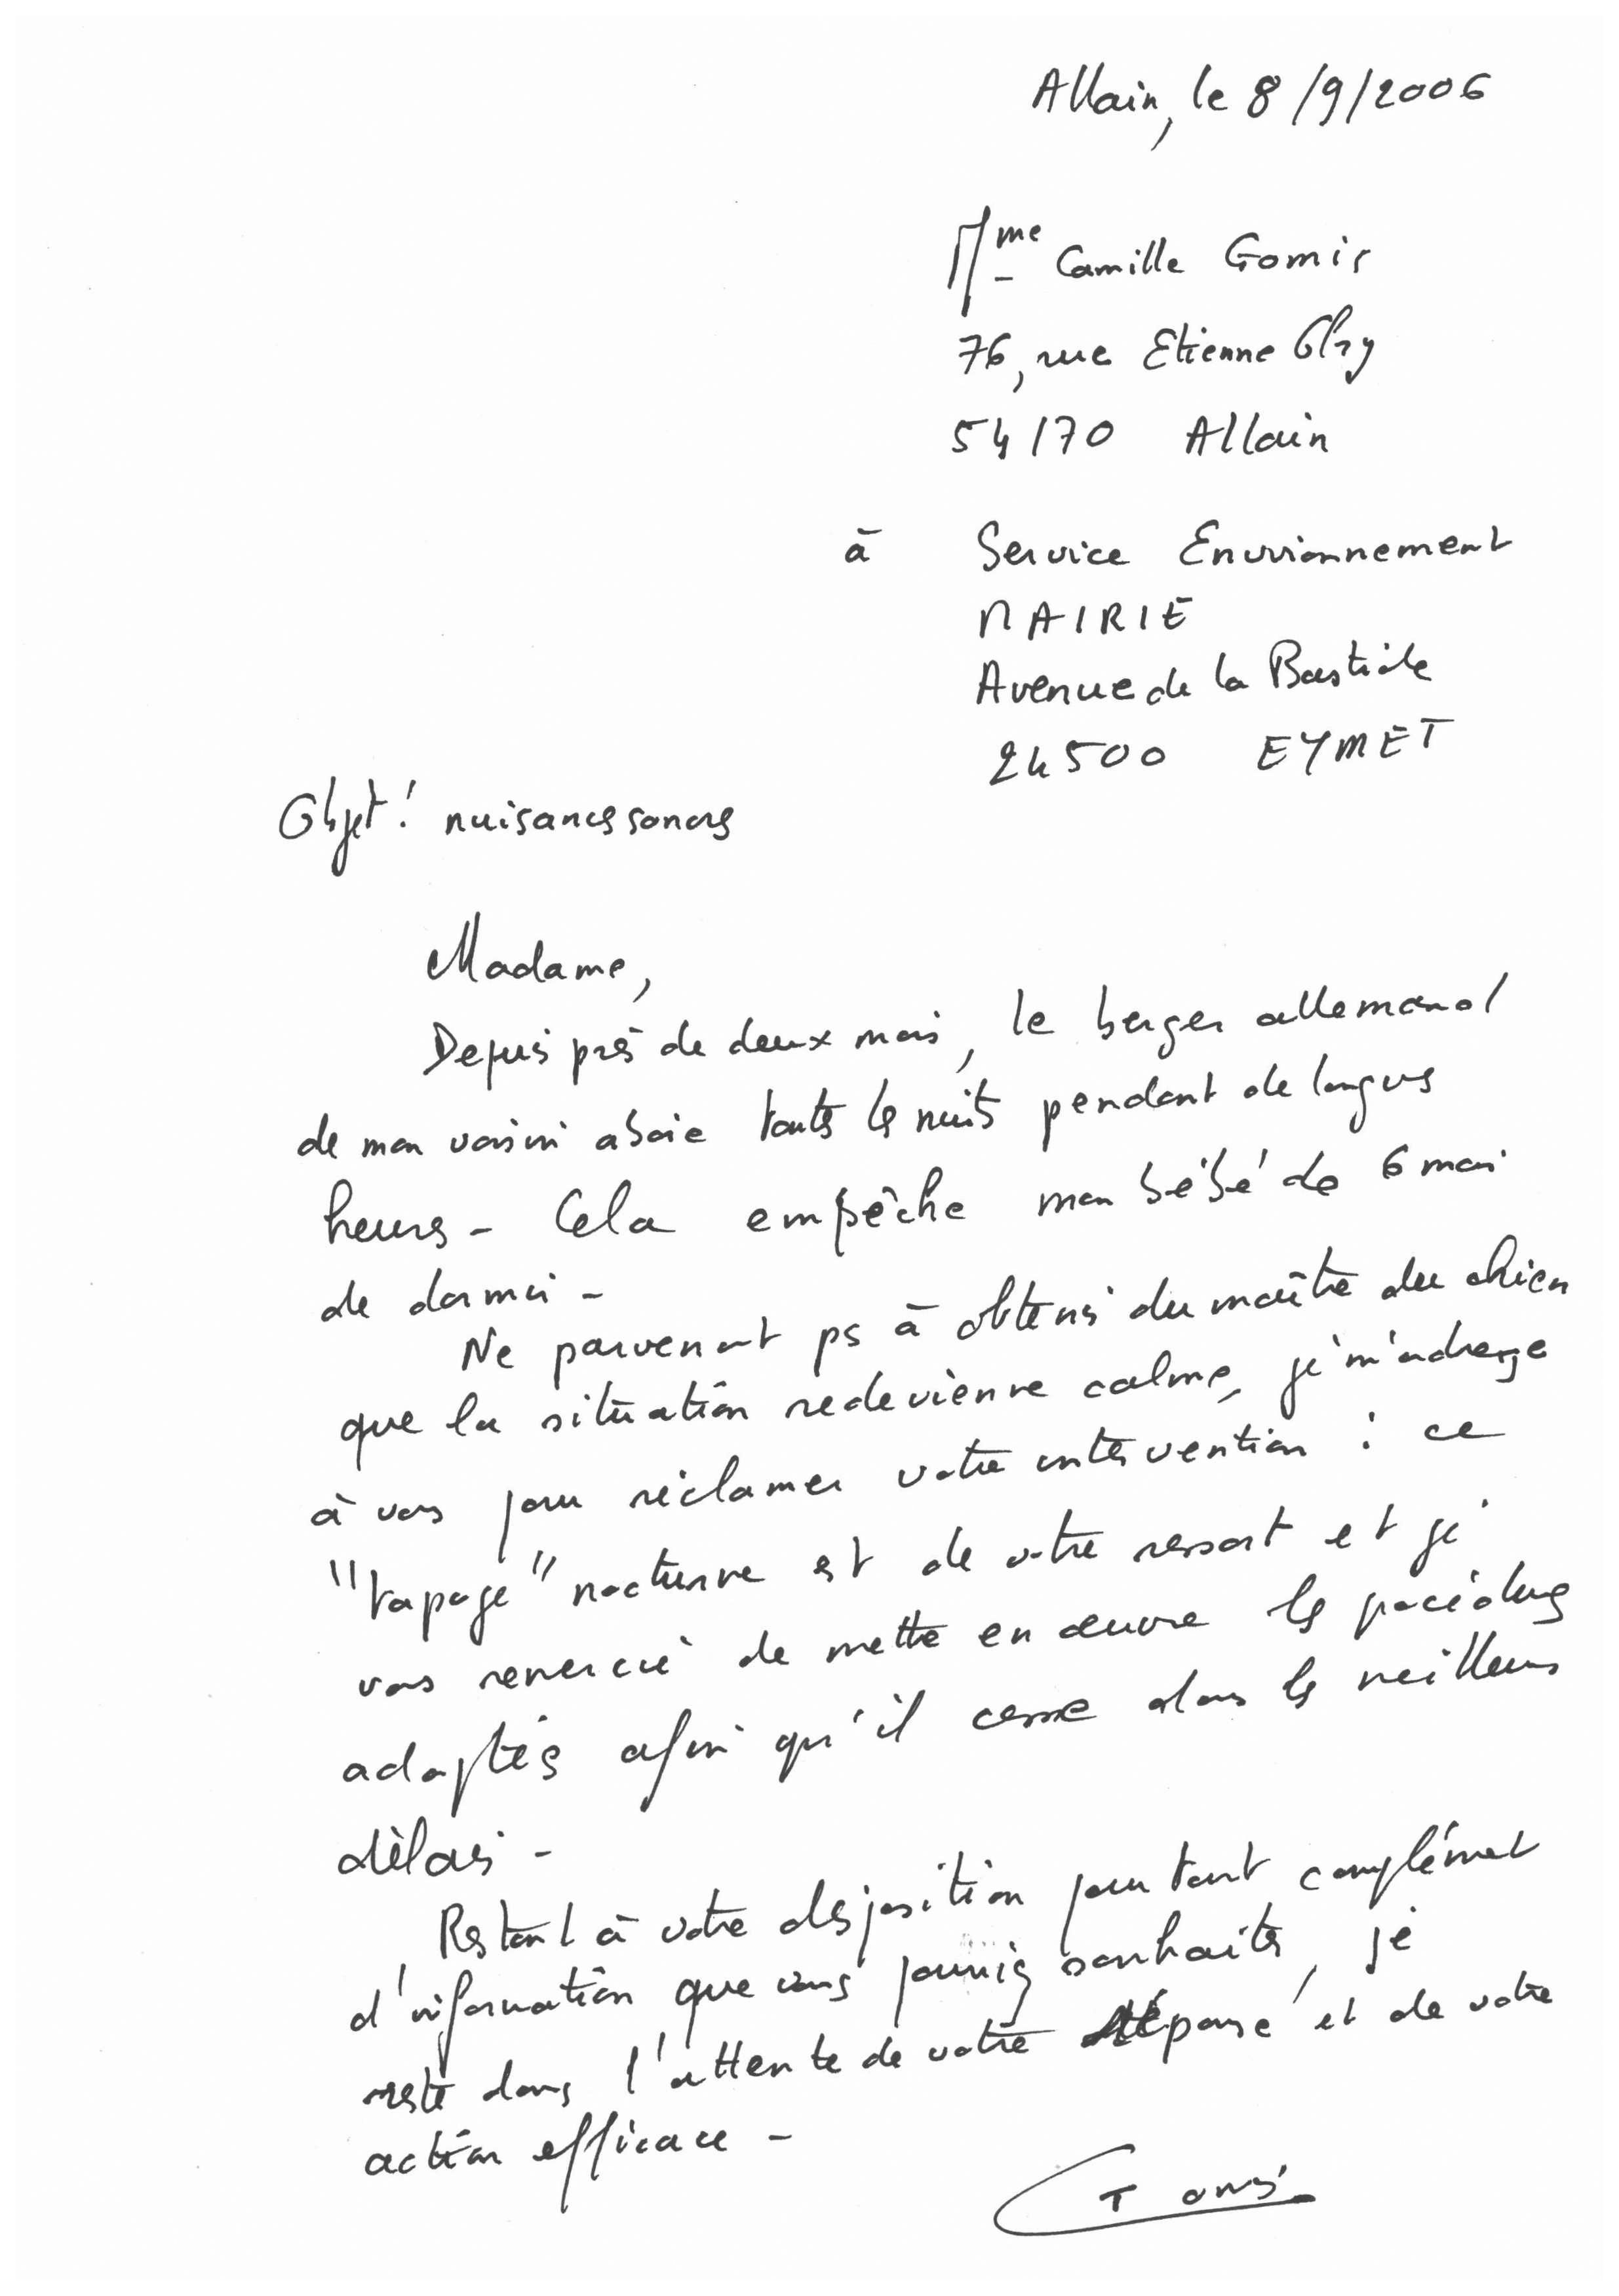 Allain, le 8/9/2006
Mme Camille Gomis
76, rue Etienne
54170 Allain
à Service Environnement
MAIRIE
Avenue de la Bastide
24500 EYMET
Objet : nuisances sonores
Madame,
Depuis près de deux mois, le berger allemand
de mon voisin aboie toutes les nuits pendant de longues
heures - Cela empêche mon bébé de 6 mois
de dormir -
Ne parvenant pas à obtenir du maître du chien
que la situation redevienne calme, je m'adresse
à vous pour réclamer votre intervention : ce
"tapage" nocturne est de votre ressort et je
vous remercie de mettre en œuvre les procédures
adaptées afin qu'il cesse dans les meilleurs
délais -
Restant à votre disposition pour tout complément
d'information que vous pourriez souhaiter, je
reste dans l'attente de votre réponse et de votre
action efficace -